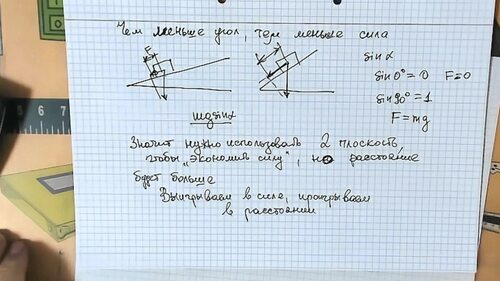 Чем меньше угол, тем меньше сила
F
sin α
sin 0° = 0 F=0
sin 90° = 1
F = mg
mg sin α
Значит нужно использовать 2 плоскость,
чтобы „экономить силу", но расстояние
будет больше
Выигрываем в силе, проигрываем
в расстоянии